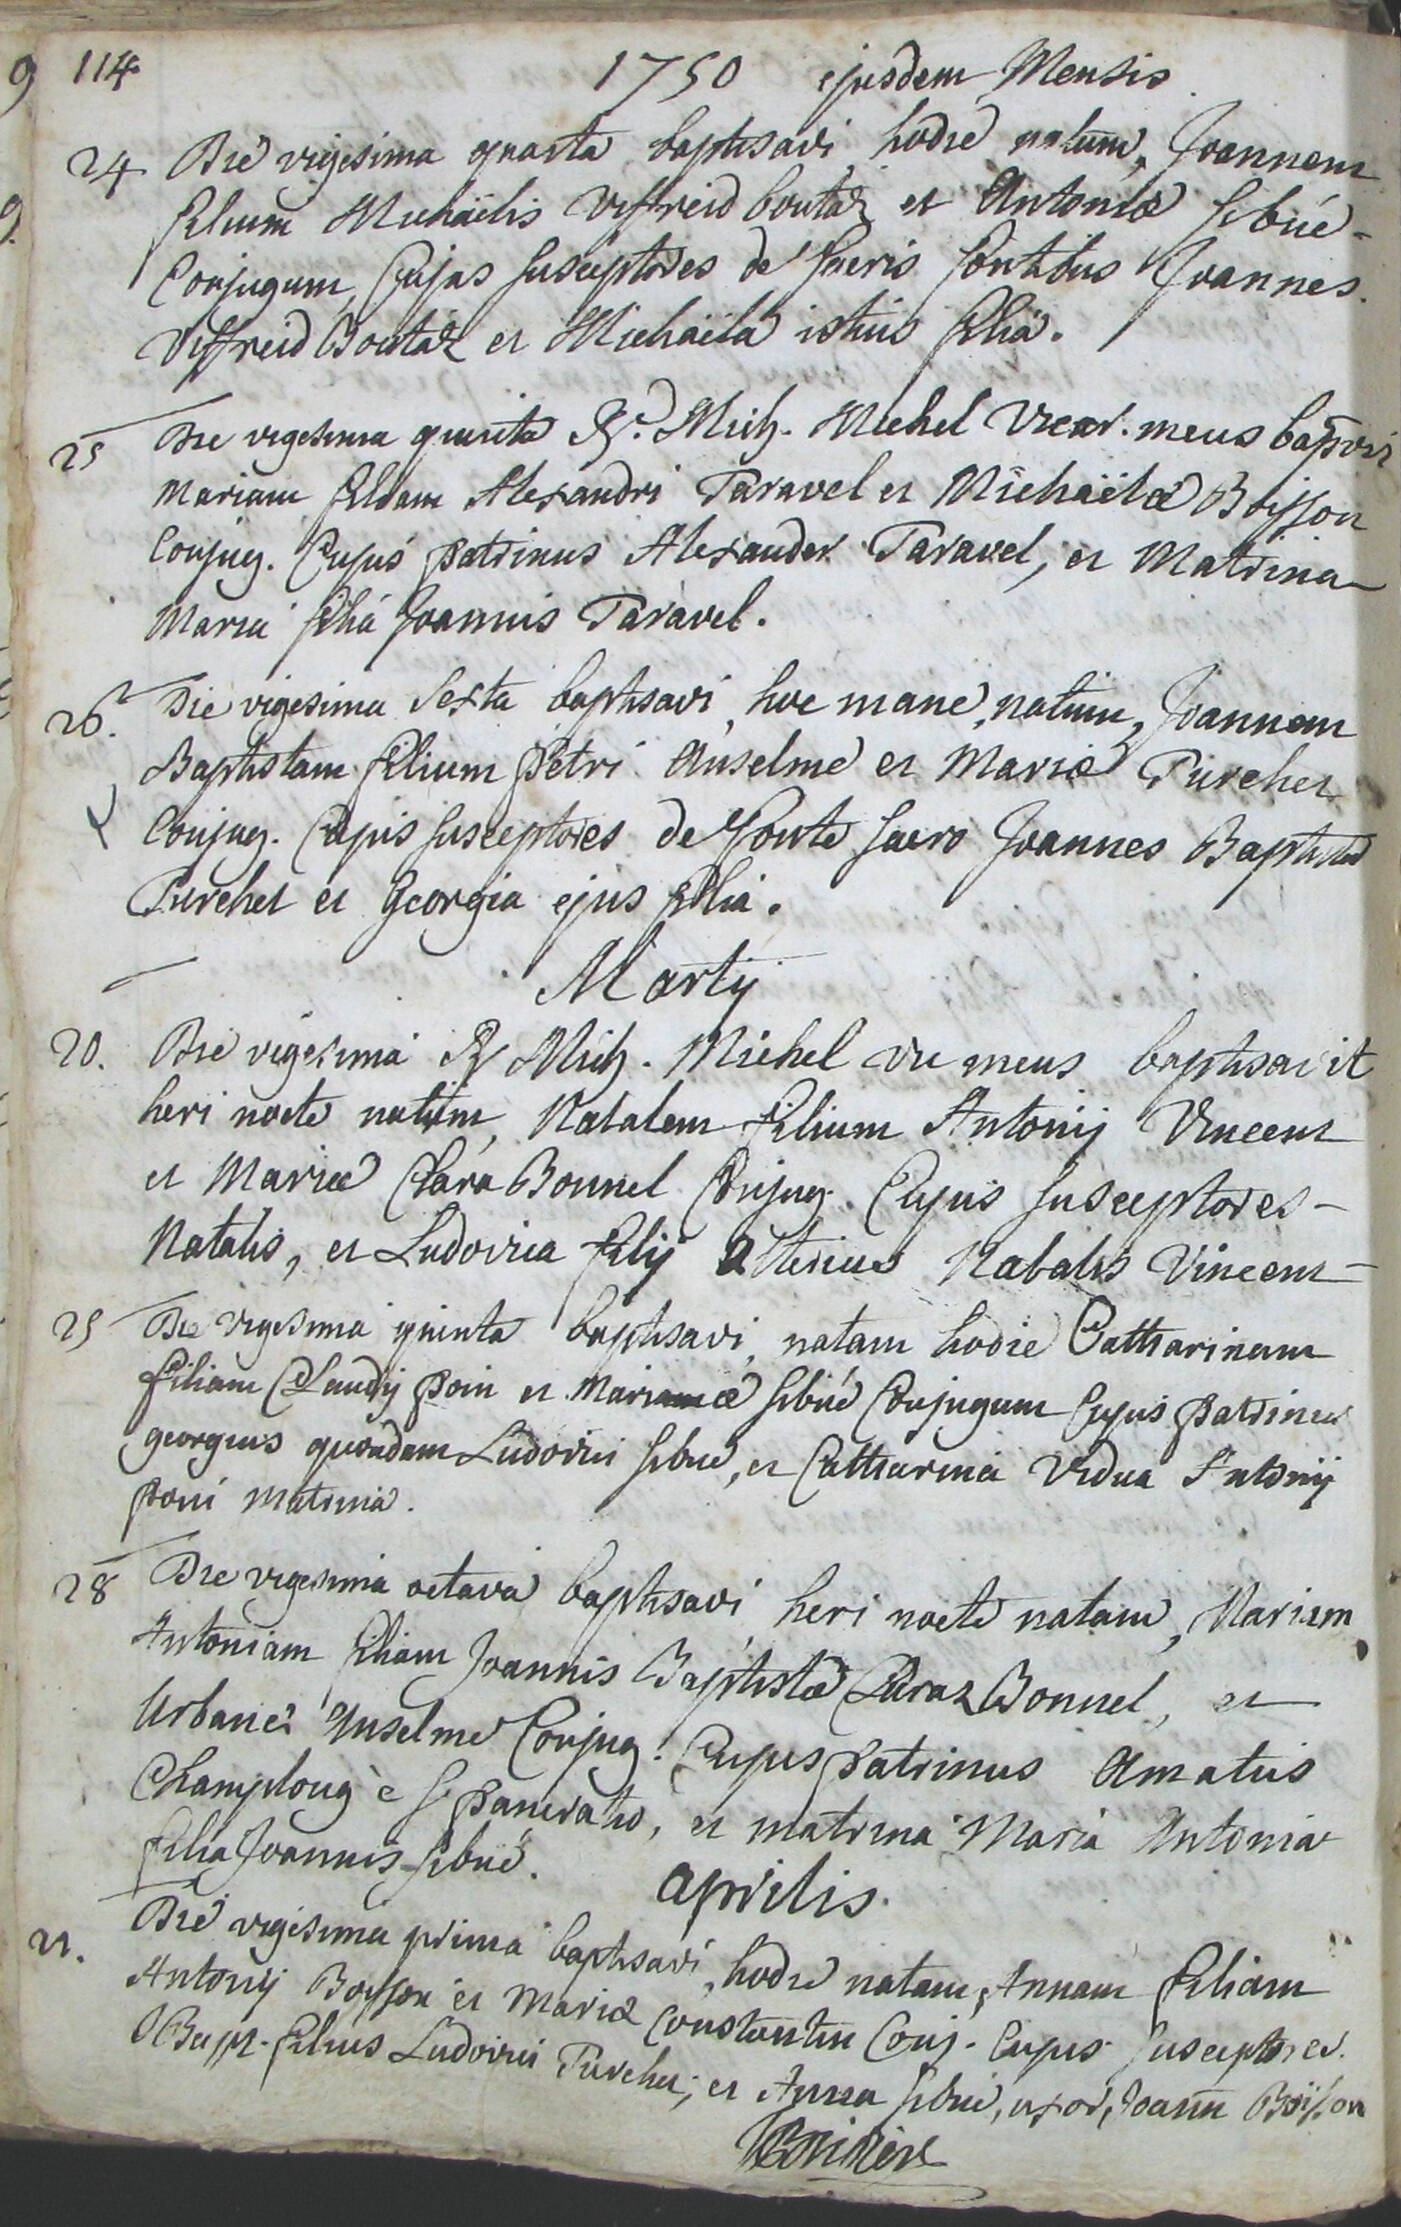 114 1750 ejusdem Mensis
24 Die vigesima quarta baptisavi hodie natum, Joannem
filium Michaëlis Viffreid boutaz et Antoniæ sibüé
Conjugum, Cujus susceptores de sacris fontibus Joannes
Viffreid Boutaz et Michaëla istius filia.
25 Die vigesima quinta R.d Mich. Michel Vicar. meus bapvit
Mariam filiam Alexandri Taravel et Michaëlæ Boisson
Conjug. Cujus patrinus Alexander Taravel, et Matrina
Maria filia Joannis Taravel.
26. Die vigesima Sexta baptisavi, hoc mane, natum, Joannem
Baptistam filium petri Anselme et Mariæ Turchet
Conjug. Cujus susceptores de fonte sacro Joannes Baptista
Turchet et Georgia ejus filia.
Martij
20. Die vigesima R Mich. Michel vic meus baptisavit
heri nocte natum, Natalem filium Antonij Vincent
et Mariæ Clara Bonnel Conjug. Cujus susceptores
Natalis, et Ludovica filij alterius Natalis Vincent
25 Die vigesima quinta baptisavi, natam hodie Catharinam
filiam Claudij poin et Mariæ sibüé Conjugum Cujus patrinus
georgius quondam Ludovici sibué, et Catharina Vidua Antonij
poin matrina.
28 Die vigesima octava baptisavi heri nocte natam, Mariam
Antoniam filiam Joannis Baptistæ Claraz Bonnel, et
Urbanez Anselme Conjug. Cujus patrinus Amatus
Champloug è s pancratio, et matrina Maria Antonia
filia Joannis sibüé.
aprilis.
21. Die vigesima prima baptisavi, hodie natam, Annam filiam
Antonij Boisson et Mariæ Constantin Conj. Cujus susceptores
J Bapt. filius Ludovici Turchet; et Anna sibué, uxor, Joann Boisson